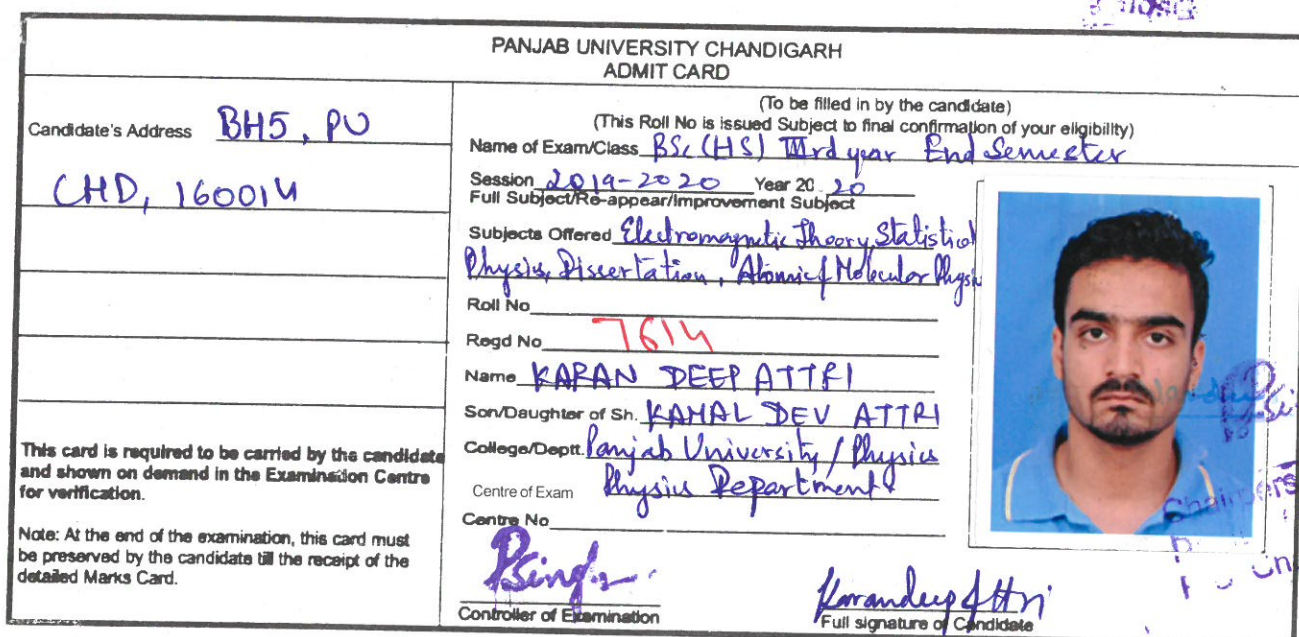 PANJAB UNIVERSITY CHANDIGARH
ADMIT CARD
Candidate's Address BH5, PU
CHD, 160014
This card is required to be carried by the candidate
and shown on demand in the Examination Centre
for verification.
Note: At the end of the examination, this card must
be preserved by the candidate till the receipt of the
detailed Marks Card.
(To be filled in by the candidate)
(This Roll No is issued Subject to final confirmation of your eligibility)
Name of Exam/Class BSc (HS) IIIrd year End Semester
Session 2019-2020 Year 20 20
Full Subject/Re-appear/Improvement Subject
Subjects Offered Electromagnetic Theory, Statistical
Physics, Dissertation, Atomic & Molecular Physi
Roll No
Regd No 7614
Name KARAN DEEP ATTRI
Son/Daughter of Sh. KAMAL DEV ATTRI
College/Deptt. Panjab University / Physics
Centre of Exam Physics Department
Centre No
PSingh
Controller of Examination
Karandeep Attri
Full signature of Candidate